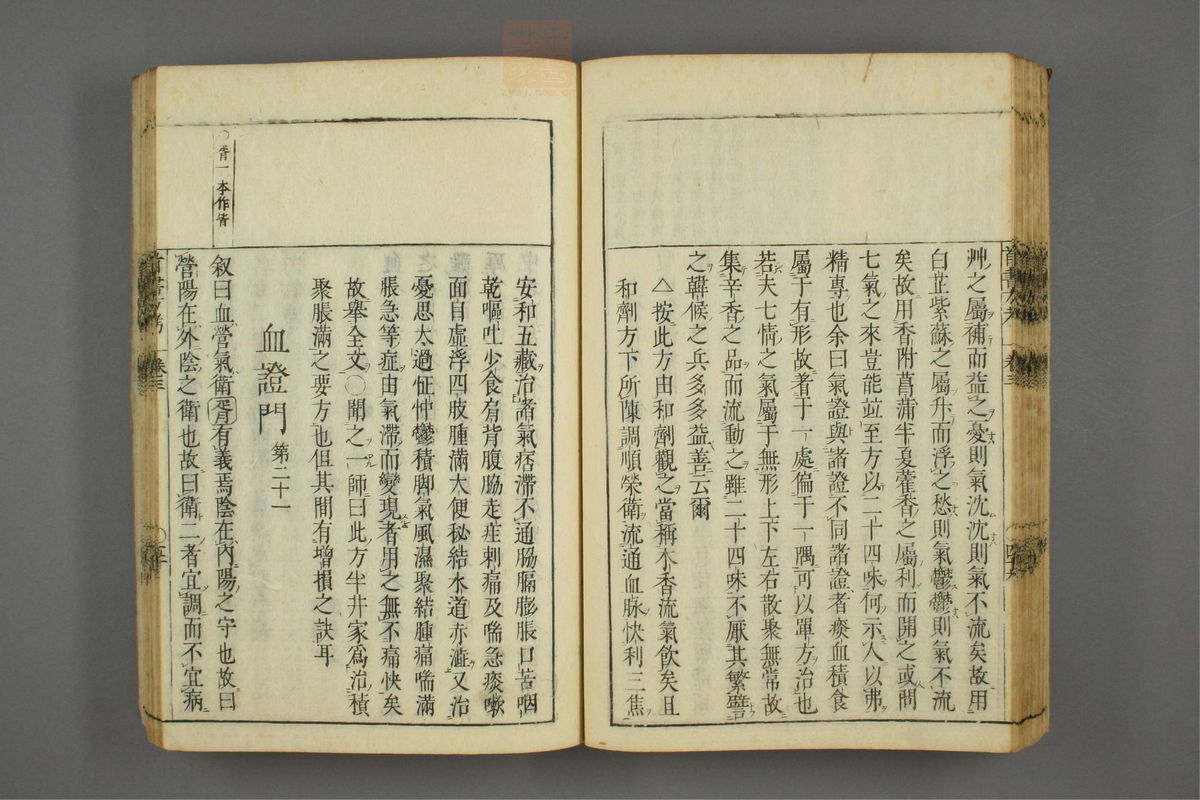 艸之屬補而益之憂則氣沈沈則氣不流矣故用
白芷紫蘇之屬升而浮之愁則氣鬱鬱則氣不流
矣故用香附菖蒲半夏藿香之屬利而開之或問
七氣之來豈能並至方以二十四味何示人以弗
精專也余曰氣證與諸證不同諸證者痰血積食
屬于有形故著于一處偏于一隅可以單方治也
若夫七情之氣屬于無形上下左右散聚無常故
集辛香之品而流動之雖二十四味不厭其繁譬
之韓候之兵多多益善云爾
△按此方由和劑觀之當稱木香流氣飲矣且
和劑方下所陳調順榮衛流通血脉快利三焦
安和五藏治諸氣痞滯不通胸膈膨脹口苦咽
乾嘔吐少食肩背腹脇走疰刺痛及喘急痰嗽
面目虛浮四肢腫滿大便秘結水道赤澁又治
憂思太過怔忡鬱積脚氣風濕聚結腫痛喘滿
脹急等症由氣滯而變現者用之無不痛快矣
故舉全文○聞之一師曰此方半井家為治積
聚脹滿之要方也但其間有增損之訣耳
血證門 第二十一
○胥一本作胥
叙曰血營氣衛胥有義焉陰在內陽之守也故曰
營陽在外陰之衛也故曰衛二者宜調而不宜病
卷三